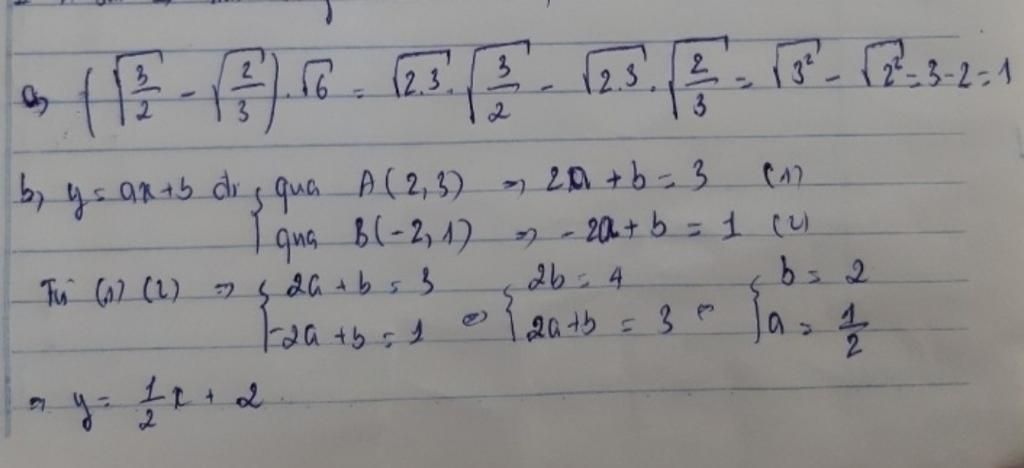 a, (√(3/2) - √(2/3)).√6 = √2.3.√(3/2) - √2.3.√(2/3) = √3² - √2² = 3-2=1
b, y = ax+b đi { qua A(2,3) => 2a + b = 3 (1)
qua B(-2,1) => -2a + b = 1 (2)
Từ (1) (2) => { 2a + b = 3 <=> { 2b = 4 <=> { b = 2
-2a + b = 1 2a+b = 3 a = 1/2
=> y = 1/2 x + 2